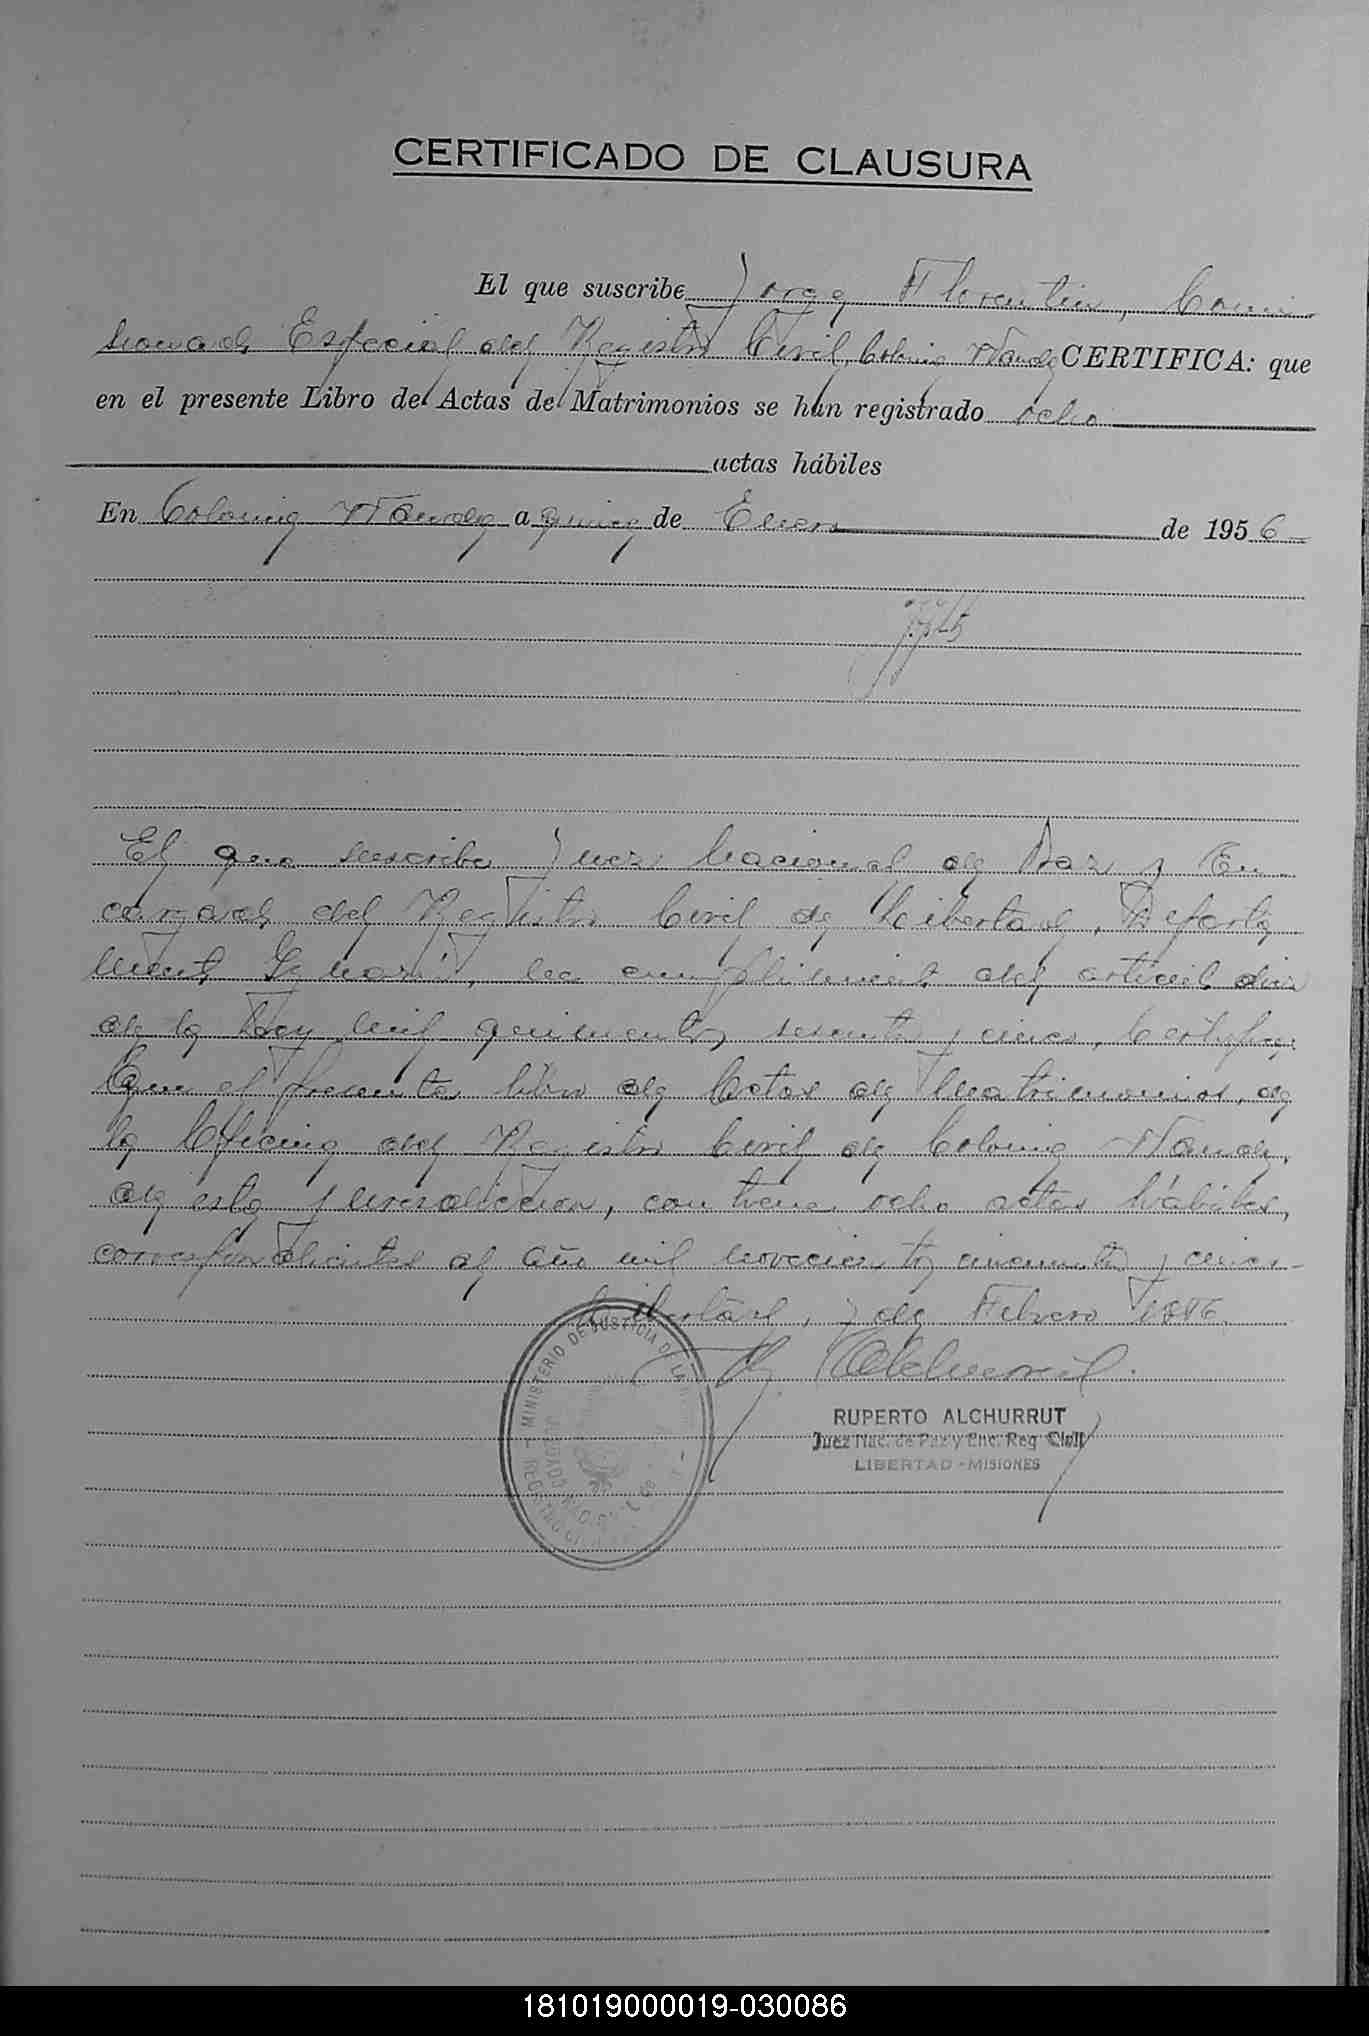 CERTIFICADO DE CLAUSURA
El que suscribe Jorge Florentin, Comi
sionado Especial del Registro Civil, Colonia Wanda CERTIFICA: que
en el presente Libro de Actas de Matrimonios se han registrado ocho
actas hábiles
En Colonia Wanda a quince de Enero de 1956
El que suscribe Juez Nacional de Paz y En
cargado del Registro Civil de Libertad, Departa
mento Iguazú, en cumplimiento del artículo diez
de la Ley mil quinientos sesenta y cinco, Certifica:
Que el presente libro de Actas de Matrimonios, de
la Oficina del Registro Civil de Colonia Wanda,
de esta jurisdiccion, contiene ocho actas hábiles,
correspondientes al año mil novecientos cincuenta y cinco
Libertad, 7 de Febrero 1956.
RUPERTO ALCHURRUT
Juez Nac. de Paz y Enc. Reg. Civil
LIBERTAD - MISIONES
MINISTERIO DE JUSTICIA DE LA
REGISTRO CIVIL
JUZGADO
181019000019-030086